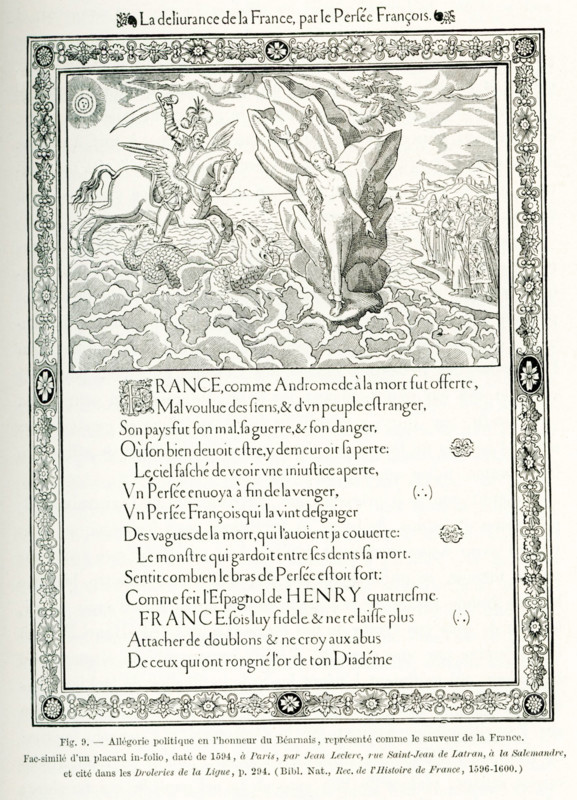 La deliurance de la France, par le Perſée François.
FRANCE, comme Andromede à la mort fut offerte,
Mal voulue des ſiens, & d'vn peuple eſtranger,
Son pays fut ſon mal, ſa guerre, & ſon danger,
Où ſon bien deuoit eſtre, y demeuroit ſa perte:
Le ciel faſché de veoir vne iniuſtice aperte,
Vn Perſée enuoya à fin de la venger,
Vn Perſée François qui la vint deſgaiger
Des vagues de la mort, qui l'auoient ja couuerte:
Le monſtre qui gardoit entre ſes dents ſa mort.
Sentit combien le bras de Perſée eſtoit fort:
Comme feit l'Eſpagnol de HENRY quatrieſme.
FRANCE ſois luy fidele & ne te laiſſe plus
Attacher de doublons & ne croy aux abus
De ceux qui ont rongné l'or de ton Diadéme
Fig. 9. — Allégorie politique en l'honneur du Béarnais, représenté comme le sauveur de la France.
Fac-similé d'un placard in-folio, daté de 1594, à Paris, par Jean Leclerc, rue Saint-Jean de Latran, à la Salemandre,
et cité dans les Droleries de la Ligue, p. 294. (Bibl. Nat., Rec. de l'Histoire de France, 1596-1600.)